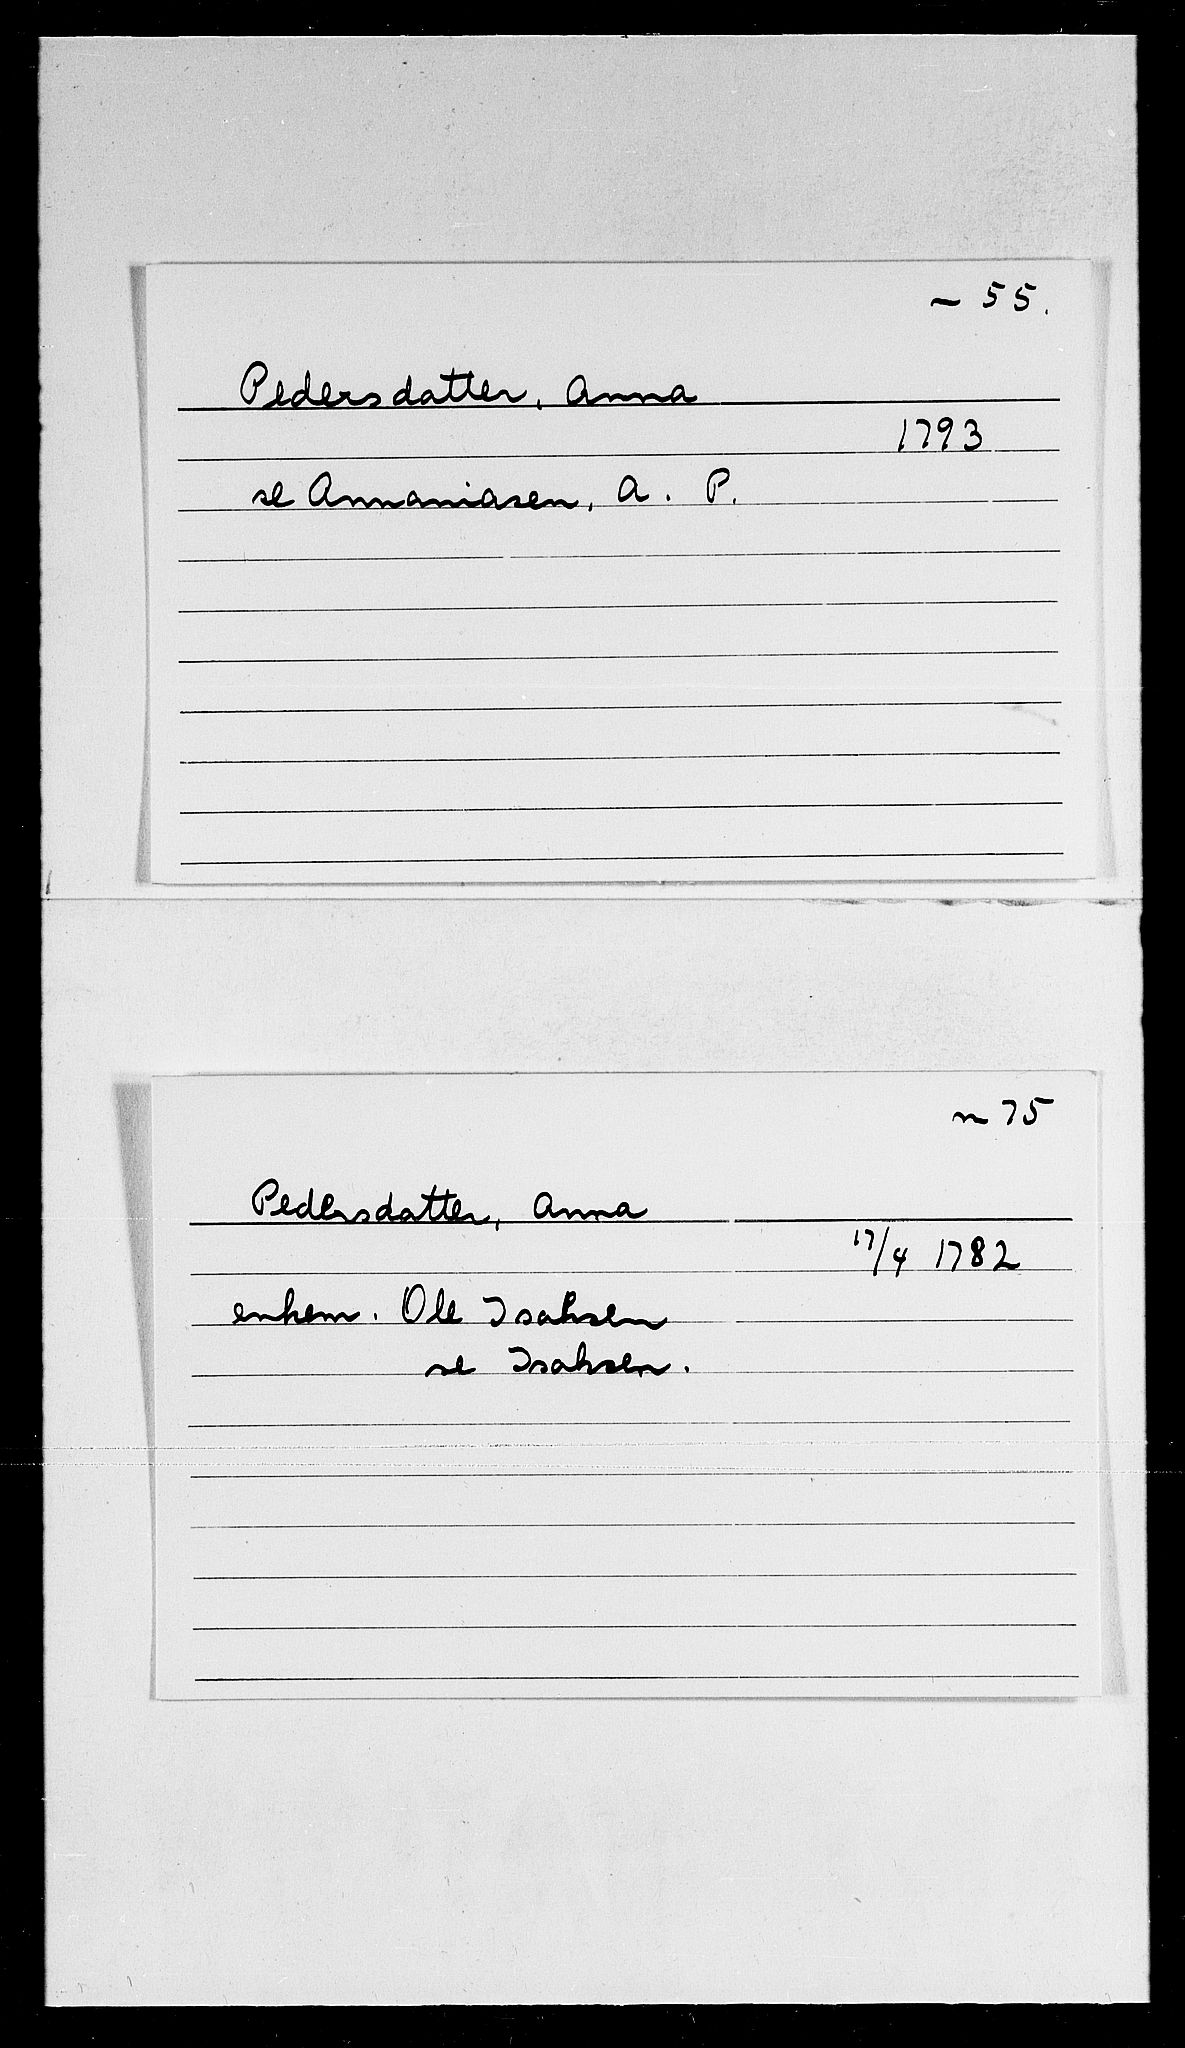 ~ 55.
Pedersdatter, Anna
1793
se Annaniasen, A. P.
n 75
Pedersdatter, Anna
17/4 1782
enkem. Ole Isaksen
se Isaksen.